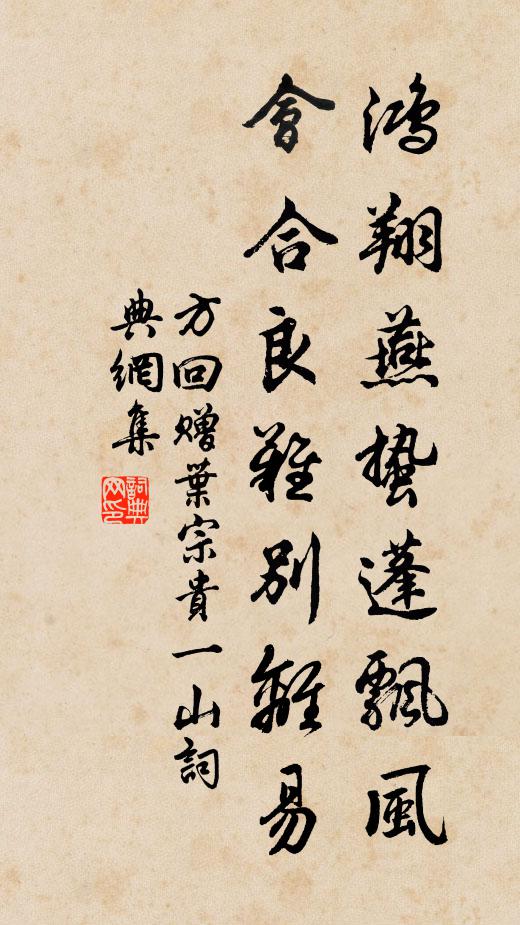 鴻翔燕蟄蓬飄風
會合良難別離易
方回贈葉宗貴一山詞
典網集
詞典网印